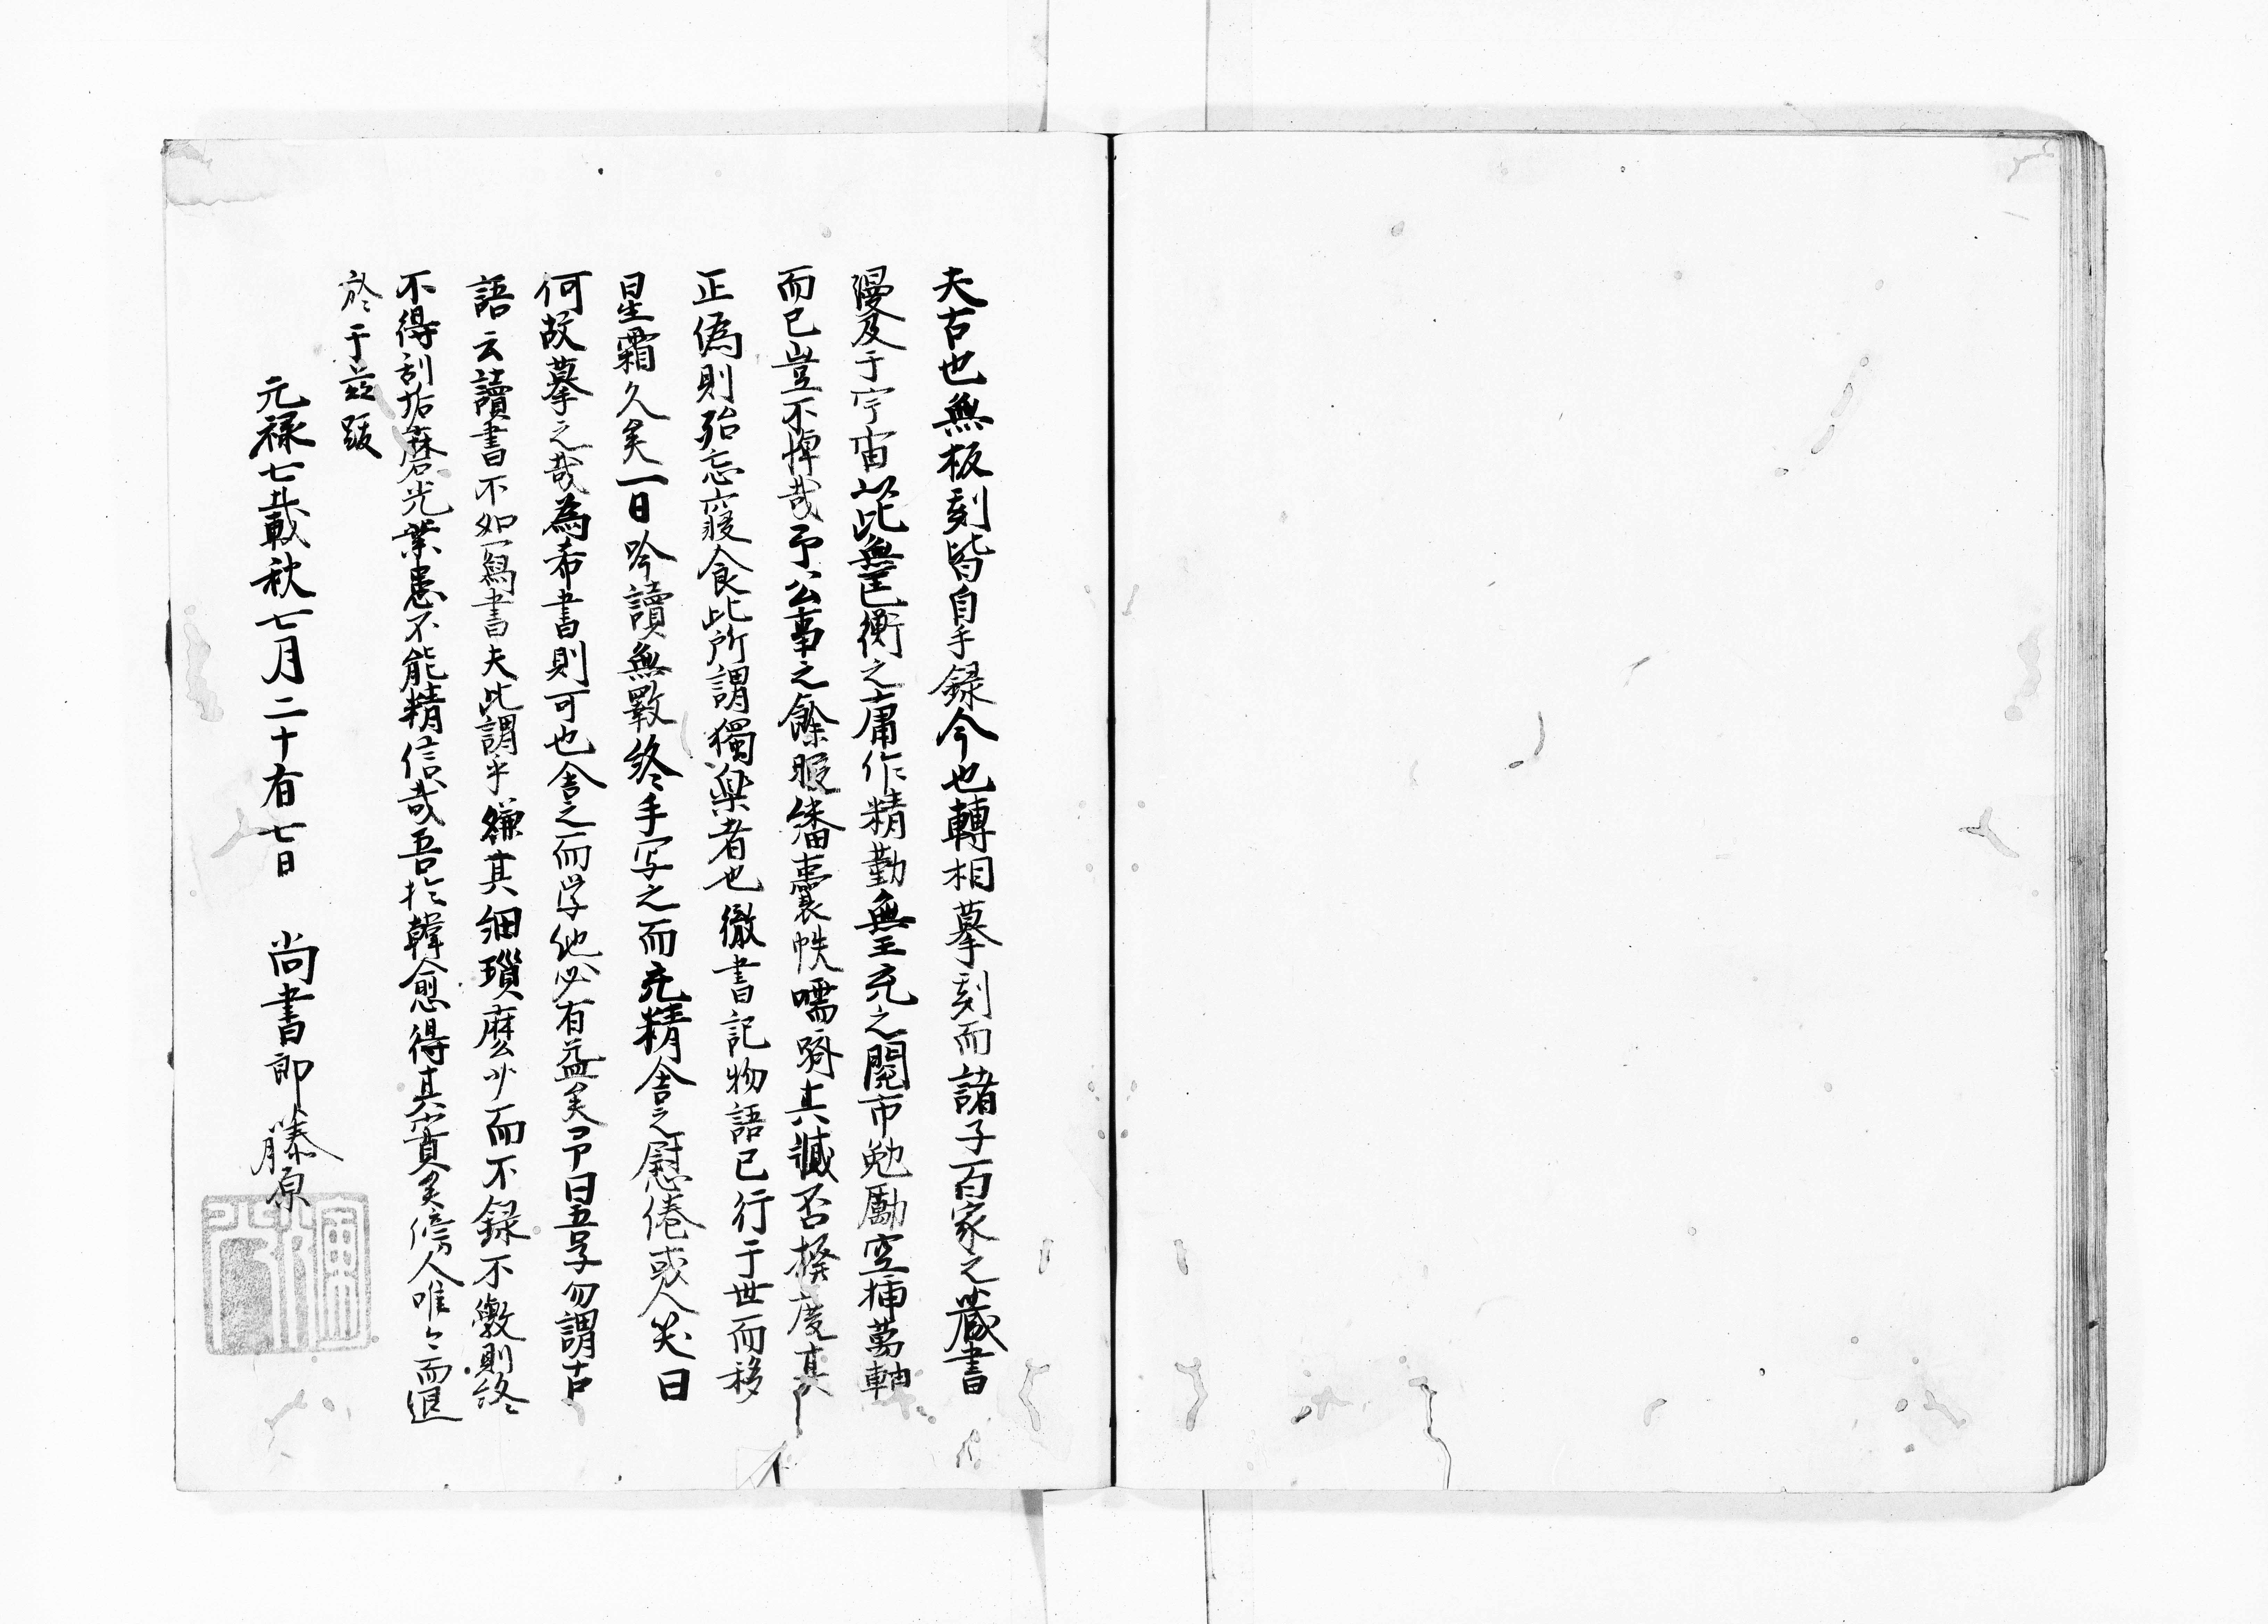 夫古也無板刻皆自手録今也轉相摹刻而諸子百家之藏書
漫及于宇宙以此無匡衡之庸作精勤無王充之閲市勉勵空插萬軸
而已豈不悼哉予公事之餘暇繙囊帙嚅嚌其臧否揆度其
正偽則殆忘寢食此所謂獨樂者也徹書記物語已行于世而移
星霜久矣一日吟讀無斁終手写之而充精舎之慰倦或人笑曰
何故摹之哉為希書則可也舎之而学他必有益矣予曰吾子勿謂古
語云讀書不如寫書夫此謂乎縑其細瑣麽少而不録不數則終
不得刮垢磨光業患不能精信哉吾於韓愈得其實矣傍人唯々而退
於于茲跋
元禄七載秋七月二十有七日 尚書郎藤原